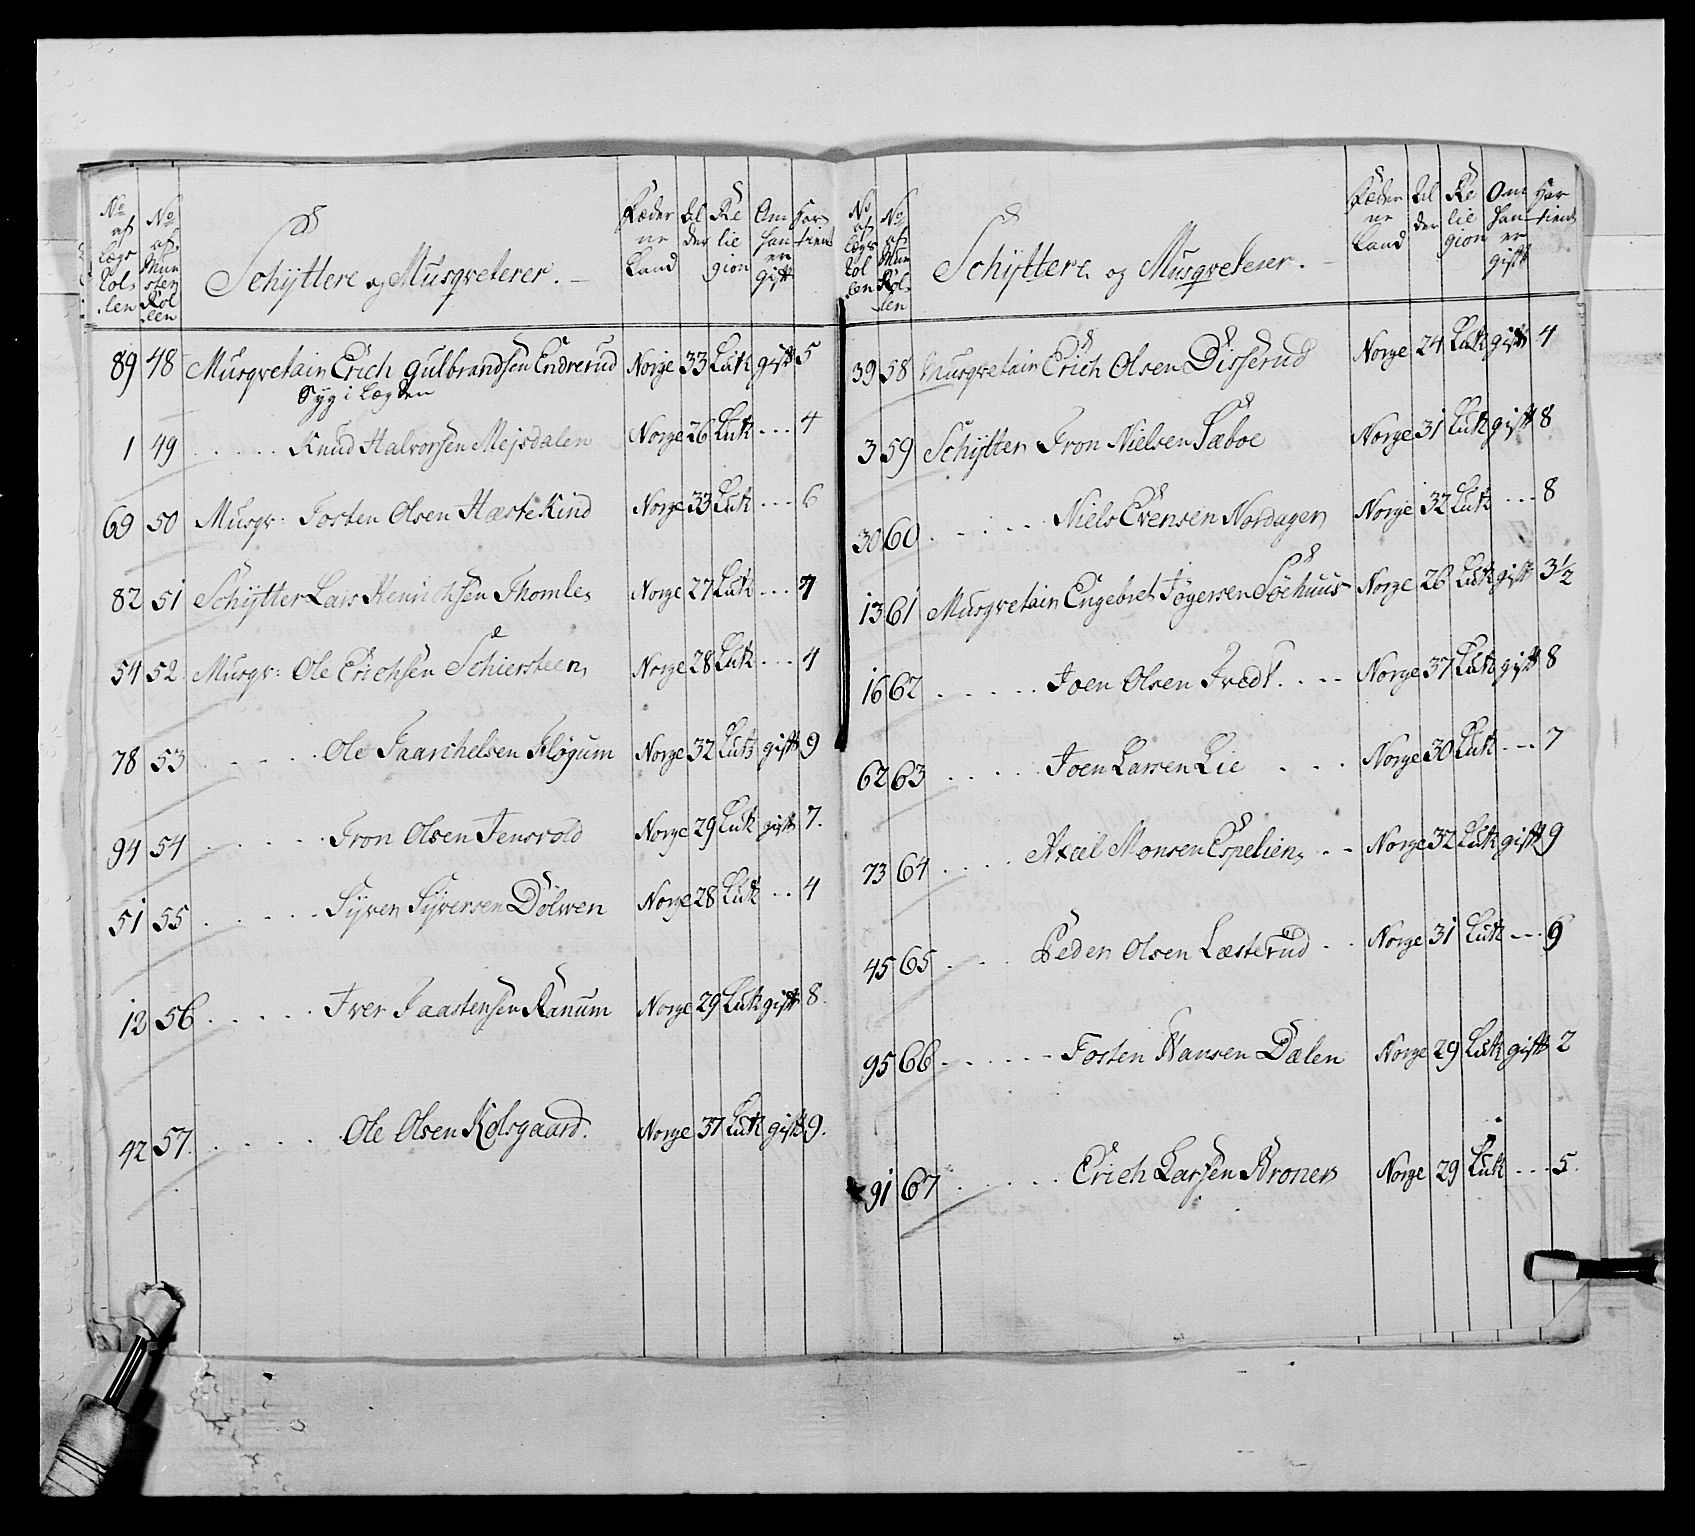 No af Lægs Rollen | No af Mun sten Rol len | Schÿttere og Musqveterer. | Fæder ne Land | Al der | Re lie gion | Om han er gift | Har tient
89 48 Musqvetair Erich Gulbrandsen Endrerud Norge 33 Luth gift 5
Syg i Lægden
1 49 . . . . . Knud Halvorsen Mejsdalen Norge 26 Luth . . . 4
69 50 Musqv: Tosten Olsen Hæstekind Norge 33 Luth . . . 6
82 51 Schÿtter Lars Henrichsen Thomle Norge 27 Luth . . . 4
54 52 Musqv: Ole Erichsen Schiersteen Norge 28 Luth . . . 4
78 53 . . . . . Ole Taarchelsen Fløgum Norge 32 Luth gift 9
94 54 . . . . . Tron Olsen Jensvold Norge 29 Luth gift 7.
51 55 . . . . . Syver Syversen Dølven Norge 28 Luth . . . 4
12 56 . . . . . Iver Taastensen Ranum Norge 29 Luth gift 8.
42 57. . . . . . Ole Olsen Kolsgaard. Norge 37 Luth gift 9.
No af Lægs Rol len | No af Mun Rol len | Schÿttere og Musqveterer. | Fæder ne Land | Al der | Re lie gion | Om han er gift | Har tient
39 58 Musqvetair Erich Olsen Disserud Norge 24 Luth gift 4
3 59 Schÿtter Tron Nielsen Sæboe Norge 31 Luth gift 8
30 60 . . . . . Niels Evensen Nordagen Norge 32 Luth . . . 8
13 61 Musqvetair Engebret Jøgersen Søehuus Norge 26 Luth gift 3½
16 62 . . . . . Joen Olsen . . . . Norge 37 Luth gift 8
62 63 . . . . . Joen Larsen Lie . . . Norge 30 Luth . . . 7
73 64 . . . . Axel Monsen Espelien . . Norge 32 Luth gift 9
45 65 . . . . Peder Olsen Læsterud . . Norge 31 Luth . . . 9
95 66 . . . . . Tosten Hansen Dælen Norge 29 Luth gift 2
91 67 . . . . . Erich Larsen Kroner Norge 29 Luth . . . 5.